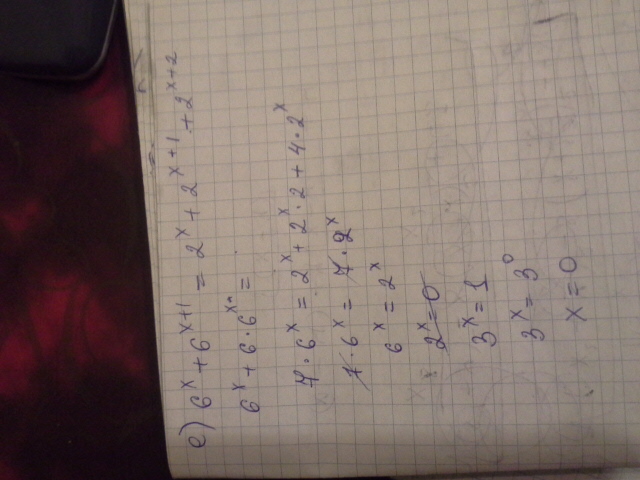 е) 6^x + 6^{x+1} = 2^x + 2^{x+1} + 2^{x+2}
6^x + 6 · 6^x =
7 · 6^x = 2^x + 2^x · 2 + 4 · 2^x
7 · 6^x = 7 · 2^x
6^x = 2^x
2^x = 0
3^x = 1
3^x = 3^0
x = 0